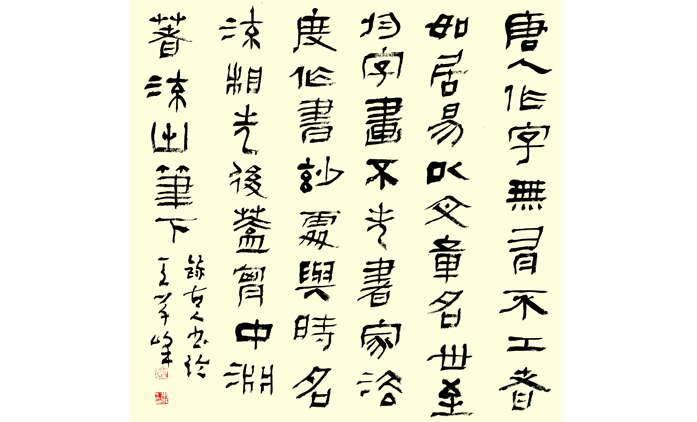 唐人作字無有不工者
如居易以文章名世至
於字畫不失書家法
度作書妙處與時名
流相先後蓋胸中淵
著流出筆下
錄古人書論